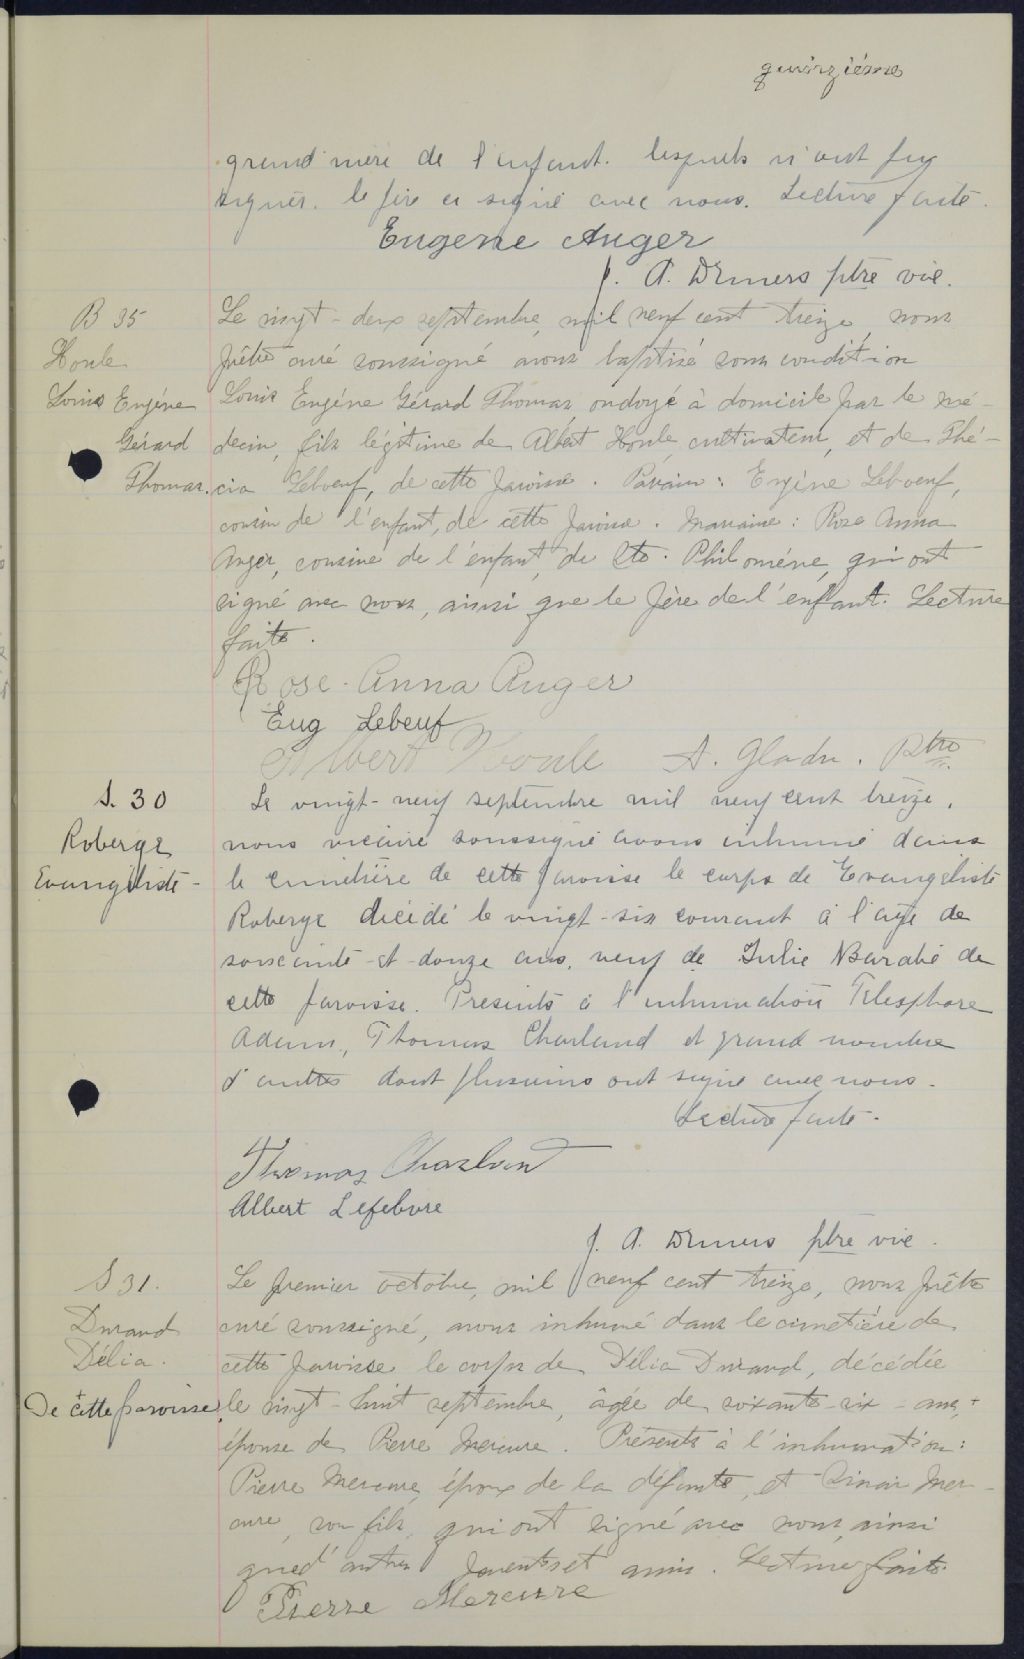 quinzième
grand'mère de l'enfant. lesquels n'ont pu
signer. le père a signé avec nous. Lecture faite.
Eugene Auger
J. A. Demers ptre vic.
B 35
Houle
Louis Eugéne
Gérard
Thomas.
Le vingt-deux septembre, mil neuf cent treize, nous
prêtre curé soussigné avons baptisé sous condition
Louis Eugéne Gérard Thomas, ondoyé à domicile par le mé-
decin, fils légitime de Albert Houle, cultivateur, et de Thé-
cia Leboeuf, de cette paroisse. Parrain: Eugéne Leboeuf,
cousin de l'enfant, de cette paroisse. Marraine: Rose Anna
Auger, cousine de l'enfant, de Ste. Philoméne, qui ont
signé avec nous, ainsi que le père de l'enfant. Lecture
faite.
Rose-Anna Auger
Eug Lebeuf
Albert Houle A. Gladu. Ptre
S. 30
Roberge
Evangéliste-
Le vingt-neuf septembre mil neuf cent treize,
nous vicaire soussigné avons inhumé dans
le cimetière de cette paroisse le corps de Evangéliste
Roberge décédé le vingt-six courant à l'âge de
soixante-et-douze ans, veuf de Julie Barabé de
cette paroisse. Présents à l'inhumation Télesphore
Adam, Thomas Charland et grand nombre
d'autres dont plusieurs ont signé avec nous.
Lecture faite.
Thomas Charland
Albert Lefebvre
J. A. Demers ptre vic.
S 31.
Durand
Délia.
+
De cette paroisse
Le premier octobre, mil neuf cent treize, nous prêtre
curé soussigné, avons inhumé dans le cimetière de
cette paroisse le corps de Délia Durand, décédée
le vingt-huit septembre, âgée de soixante-six-ans,+
épouse de Pierre Mercure. Présents à l'inhumation:
Pierre Mercure, époux de la défunte, et Sinaï Mer-
cure, son fils, qui ont signé avec nous, ainsi
que d'autres parents et amis. Lecture faite.
Pierre Mercure